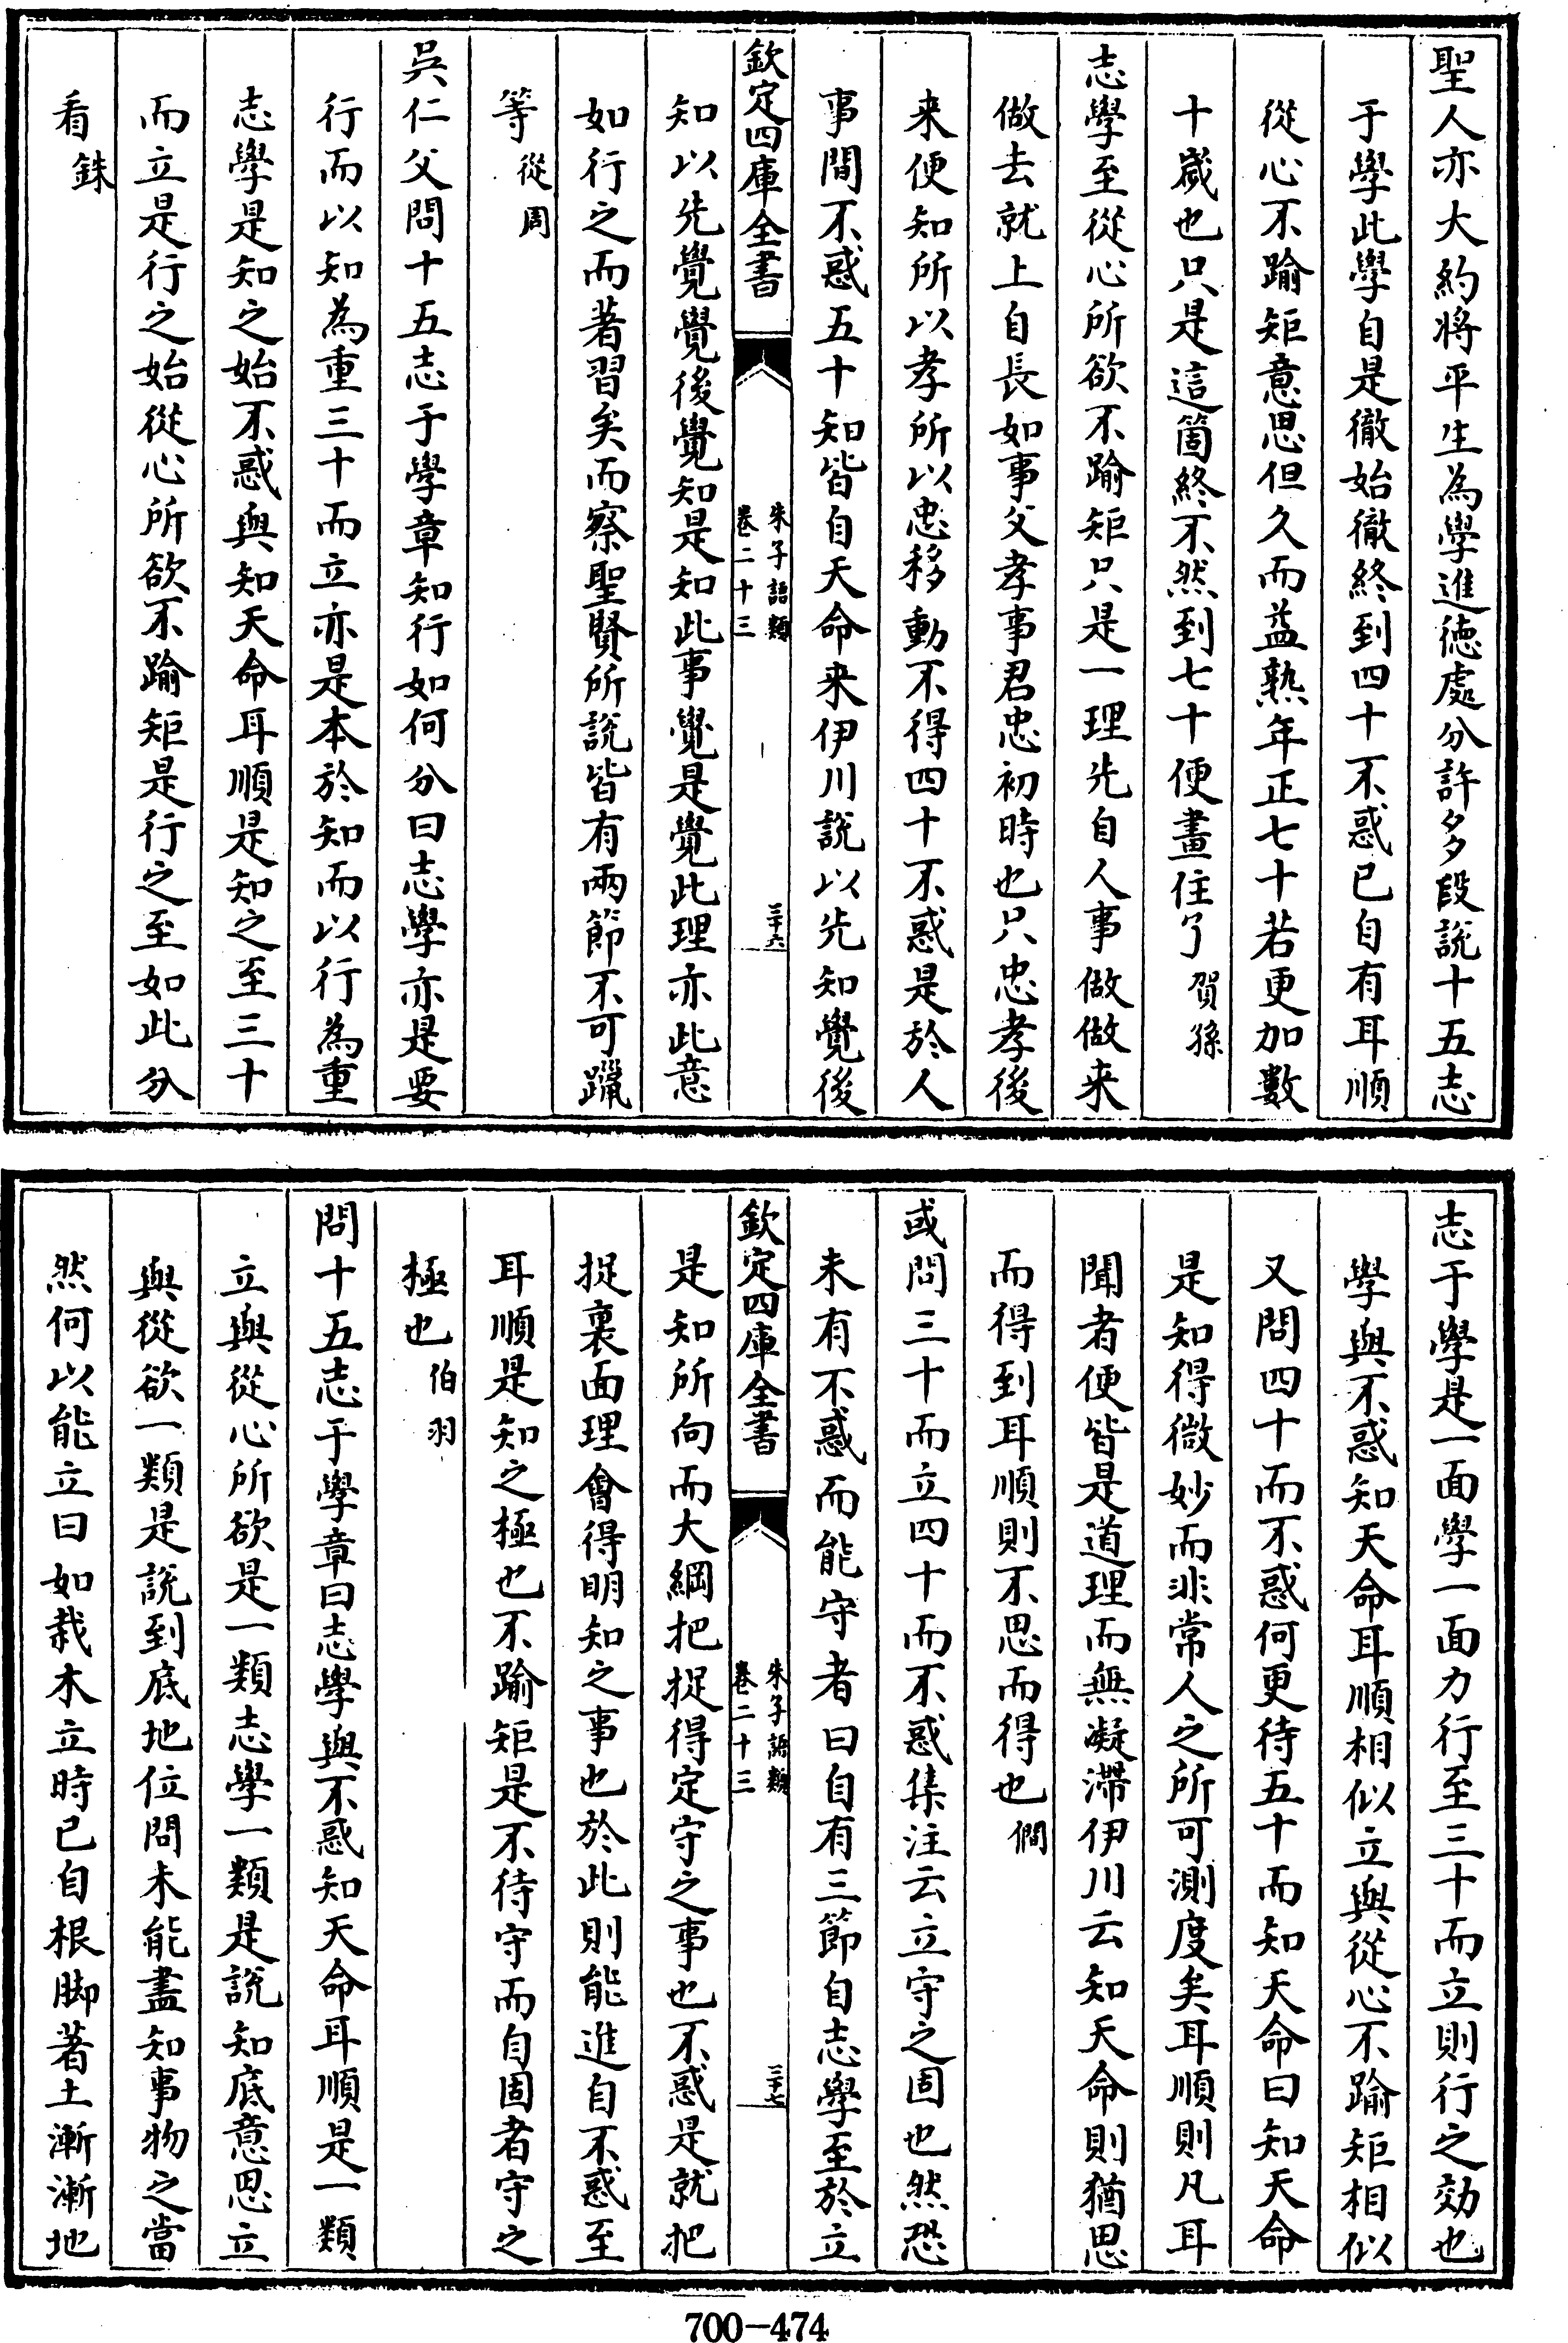 聖人亦大約將平生為學進徳處分許多段説十五志
于學此學自是徹始徹終到四十不惑已自有耳順
從心不踰矩意思但久而益熟年正七十若更加數
十歲也只是這箇終不然到七十便畫住了賀孫
志學至從心所欲不踰矩只是一理先自人事做做来
做去就上自長如事父孝事君忠初時也只忠孝後
来便知所以孝所以忠移動不得四十不惑是於人
事間不惑五十知皆自天命来伊川説以先知覺後
欽定四庫全書
朱子語類
卷二十三
三十六
知以先覺覺後覺知是知此事覺是覺此理亦此意
如行之而著習矣而察聖賢所説皆有兩節不可躐
等從周
吳仁父問十五志于學章知行如何分曰志學亦是要
行而以知為重三十而立亦是本於知而以行為重
志學是知之始不惑與知天命耳順是知之至三十
而立是行之始從心所欲不踰矩是行之至如此分
看銖
志于學是一面學一面力行至三十而立則行之効也
學與不惑知天命耳順相似立與從心不踰矩相似
又問四十而不惑何更待五十而知天命曰知天命
是知得微妙而非常人之所可測度矣耳順則凡耳
聞者便皆是道理而無凝滯伊川云知天命則猶思
而得到耳順則不思而得也僩
或問三十而立四十而不惑集注云立守之固也然恐
未有不惑而能守者曰自有三節自志學至於立
欽定四庫全書
朱子語類
卷二十三
三十七
是知所向而大綱把捉得定守之事也不惑是就把
捉裏面理會得明知之事也於此則能進自不惑至
耳順是知之極也不踰矩是不待守而自固者守之
極也伯羽
問十五志于學章曰志學與不惑知天命耳順是一類
立與從心所欲是一類志學一類是説知底意思立
與從欲一類是説到底地位問未能盡知事物之當
然何以能立曰如栽木立時已自根脚著土漸漸地
700-474